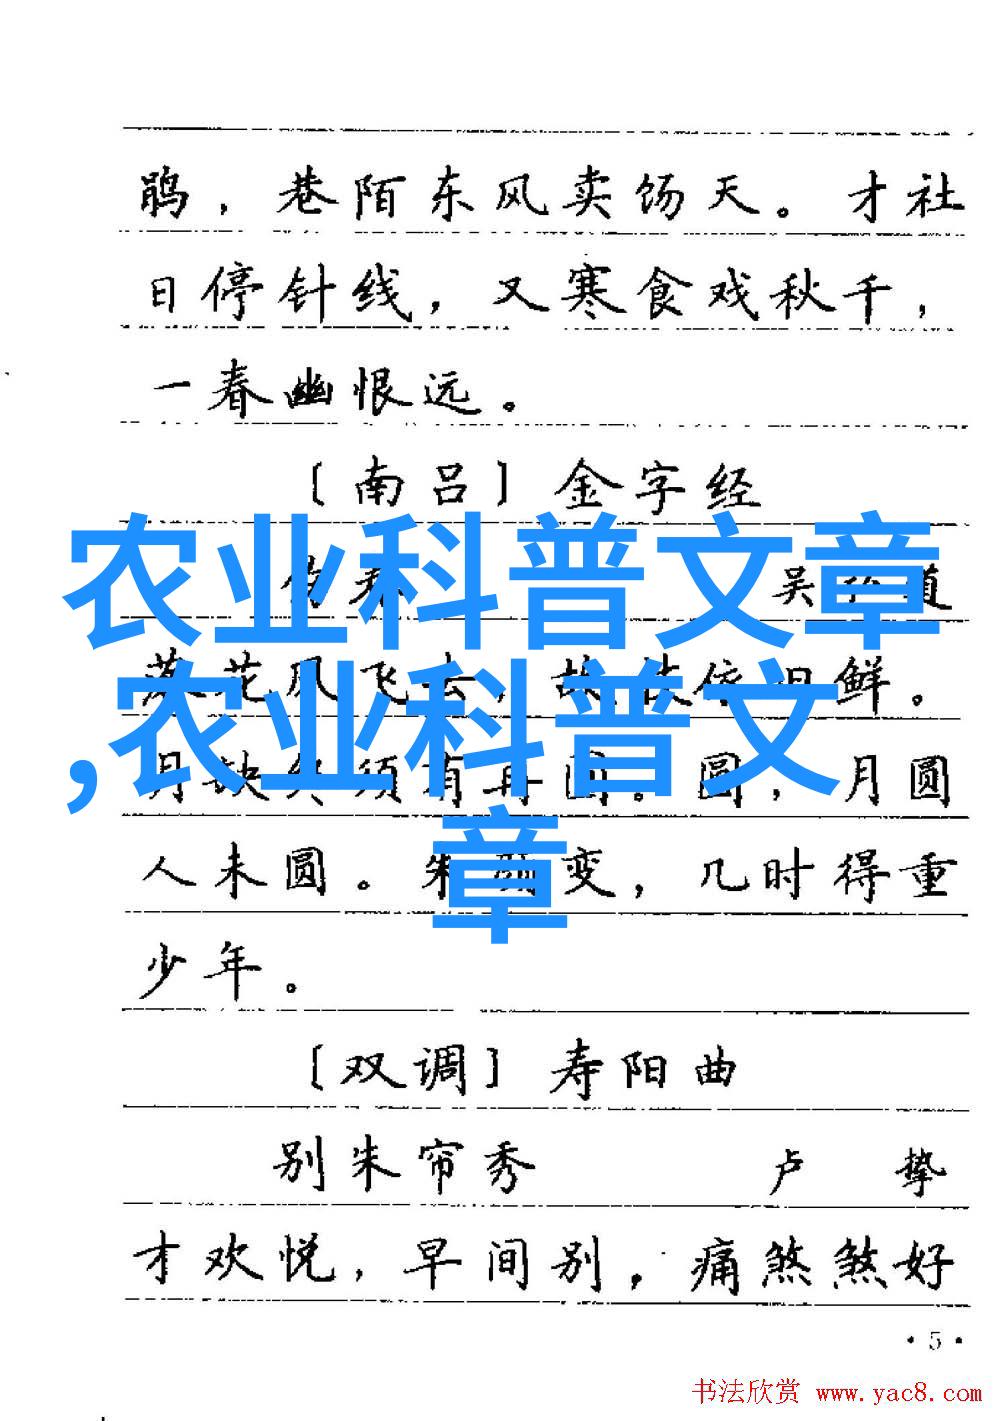 鹃，巷陌东风卖饧天。才社
日停针线，又寒食戏秋千，
一春幽恨远。
［南吕］金字经
农业科普文章
伤春 吴 道
花风飞去，故枝依旧鲜。
,农业科普文
月缺终须有再圆。圆，月圆
章
人未圆。朱颜变，几时得重
少年。
［双调］寿阳曲
别朱帘秀 卢挚
才欢悦，早间别，痛煞煞好
·5·
书法欣赏 www.yac8.com